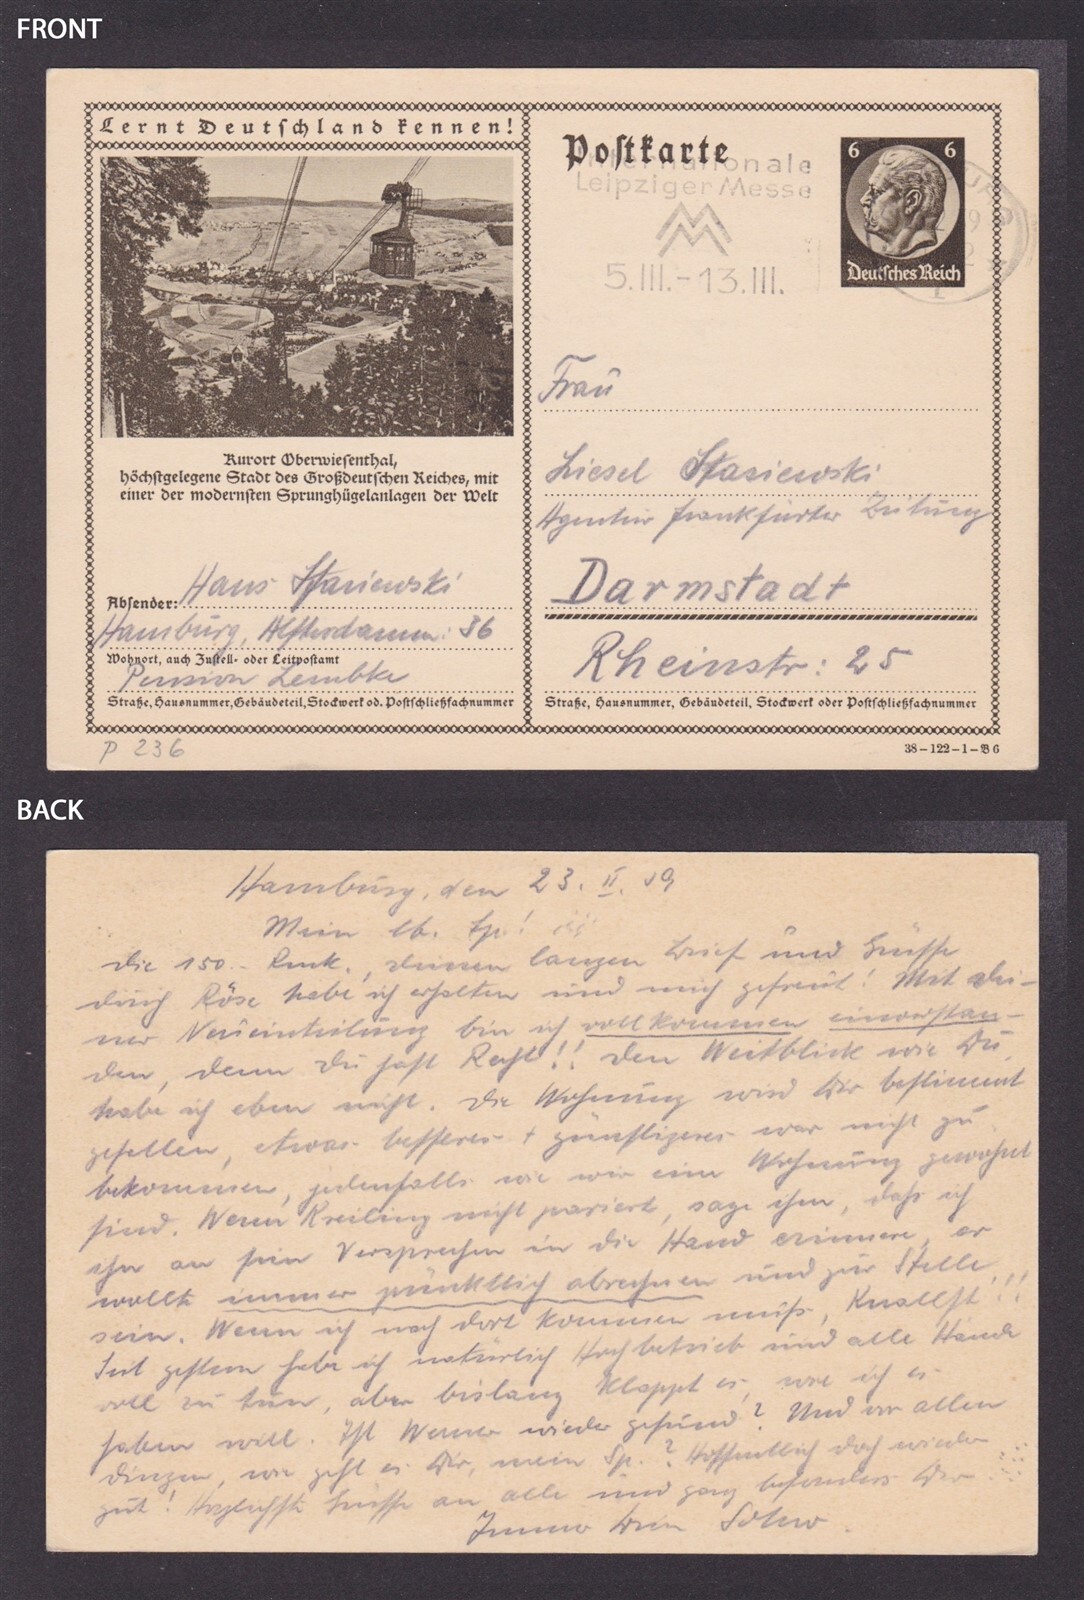 FRONT
Lernt Deutschland kennen!
Kurort Oberwiesenthal,
höchstgelegene Stadt des Großdeutschen Reiches, mit
einer der modernsten Sprunghügelanlagen der Welt
Absender: Hans Stasiewski
Hamburg, Alsterdamm: 36
Wohnort, auch Zustell- oder Leitpostamt
Pension Lembke
Straße, Hausnummer, Gebäudeteil, Stockwerk od. Postschließfachnummer
P 236
Postkarte
Internationale
Leipziger Messe
5.III.-13.III.
6 6
Deutsches Reich
Frau
Liesel Stasiewski
Agentur Frankfurter Zeitung
Darmstadt
Rheinstr: 25
Straße, Hausnummer, Gebäudeteil, Stockwerk oder Postschließfachnummer
38-122-1-B6
BACK
Hamburg, den 23. II. 39
Mein lb. Sp!
Die 150.- Rmk., deinen langen Brief und Grüsse
durch Röse habe ich erhalten und mich gefreut! Mit dei-
ner Neueinteilung bin ich vollkommen einverstan-
den, denn Du hast Recht!! Den Weitblick wie Du,
habe ich eben nicht. Die Wohnung wird Dir bestimmt
gefallen, etwas besseres + günstigeres war nicht zu
bekommen, jedenfalls wie wir eine Wohnung gewohnt
sind. Wenn Kreiling nicht pariert, sage ihm, dass ich
ihn an sein Versprechen in die Hand erinnere, er
wollte immer pünktlich abrechnen und zur Stelle
sein. Wenn ich nach dort kommen muss, Knallts!!!
Seit gestern habe ich natürlich Hochbetrieb und alle Hände
voll zu tun, aber bislang klappt es, wie ich es
haben will. Ist Werner wieder gesund? Und vor allen
dingen, wie geht es Dir, mein Sp.? Hoffentlich doch wieder
gut! Herzlichste Grüsse an alle und ganz besonders Dir
Immer Dein